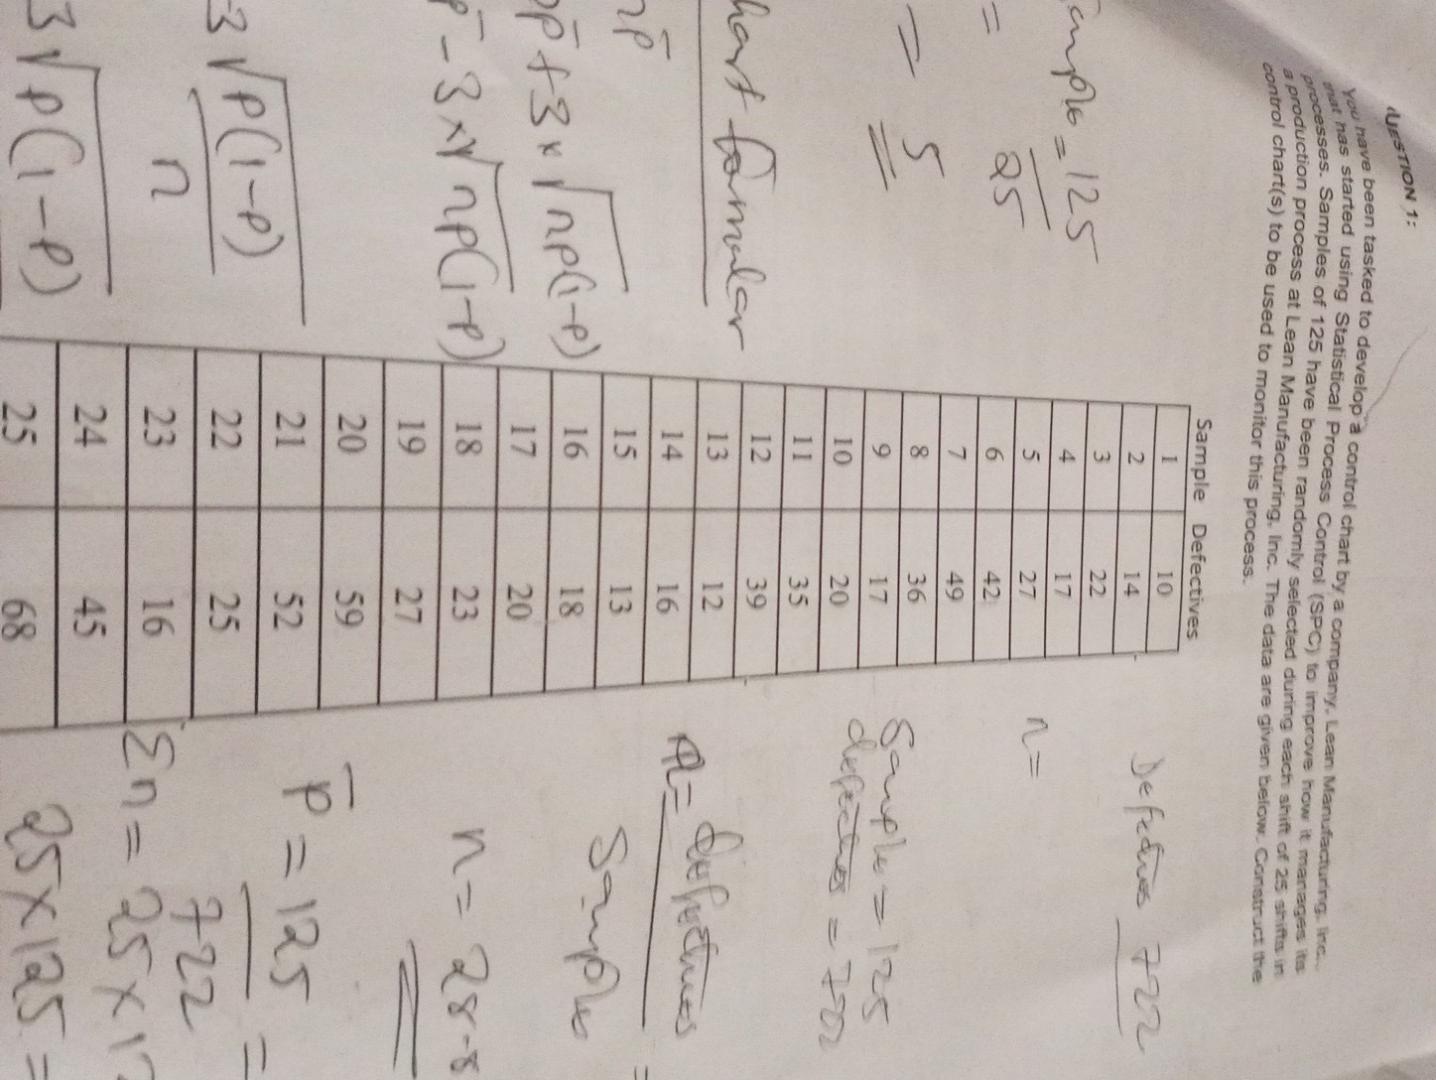 QUESTION 1:
You have been tasked to develop a control chart by a company, Lean Manufacturing, Inc.,
that has started using Statistical Process Control (SPC) to improve how it manages its
processes. Samples of 125 have been randomly selected during each shift of 25 shifts in
a production process at Lean Manufacturing, Inc. The data are given below. Construct the
control chart(s) to be used to monitor this process.
Sample Defectives
1 10
2 14
3 22
4 17
5 27
6 42
7 49
8 36
9 17
10 20
11 35
12 39
13 12
14 16
15 13
16 18
17 20
18 23
19 27
20 59
21 52
22 25
23 16
24 45
25 68
= 125
25
=
= 5
hart formular
np̄
p̄ + 3 × √np(1-p)
p̄ - 3 × √np(1-p)
3√p(1-p)
n
3√p(1-p)
Defectives 722
n =
Sample = 125
defectives = 722
= defectives =
Sample
n = 28.8
p̄ = 125 =
722
Σn = 25 × 1
25 × 125 =